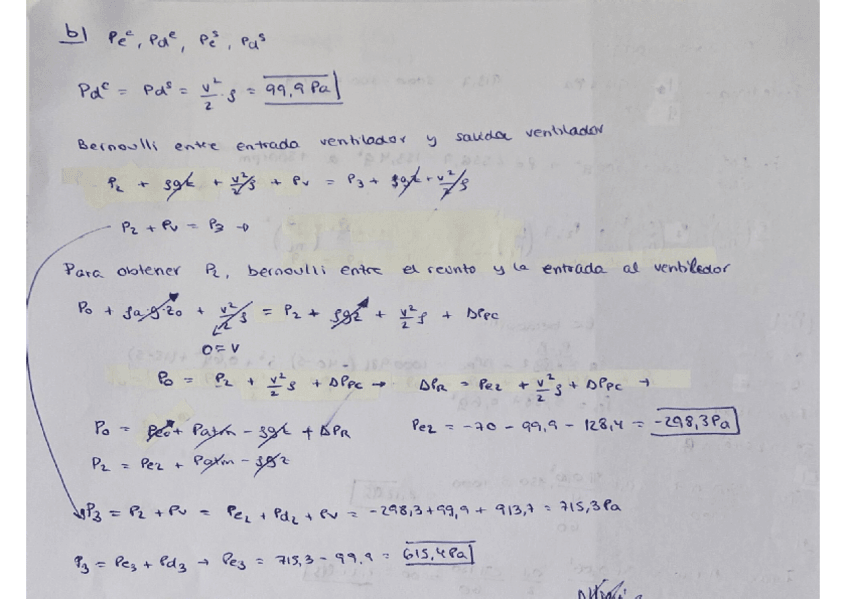 b) Pe^e, Pd^e, Pe^s, Pd^s
Pd^e = Pd^s = v²/2 · ρ = 99,9 Pa
Bernoulli entre entrada ventilador y salida ventilador
P₂ + ρgz + v²/2 ρ + Pv = P₃ + ρgz + v²/2 ρ
P₂ + Pv = P₃ →
Para obtener P₂, bernoulli entre el recinto y la entrada al ventilador
P₀ + ρa·g·z₀ + v²/2 ρ = P₂ + ρgz + v²/2 ρ + ΔPpc
0=v
P₀ = P₂ + v²/2 ρ + ΔPpc → ΔPR = Pe₂ + v²/2 ρ + ΔPpc →
P₀ = Pe₀ + Patm - ρgz + ΔPR Pe₂ = -70 - 99,9 - 128,4 = -298,3 Pa
P₂ = Pe₂ + Patm - ρgz
P₃ = P₂ + Pv = Pe₂ + Pd₂ + Pv = -298,3 + 99,9 + 913,7 = 715,3 Pa
P₃ = Pe₃ + Pd₃ → Pe₃ = 715,3 - 99,9 = 615,4 Pa